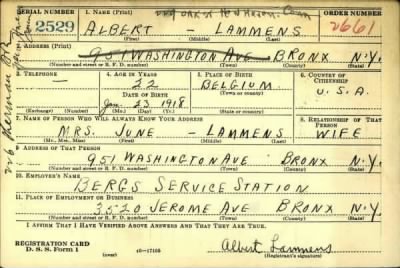 SERIAL NUMBER 1. NAME (Print) ORDER NUMBER
2529 ALBERT - LAMMENS 2661
(First) (Middle) (Last)
2. ADDRESS (Print)
951 WASHINGTON AVE BRONX N.Y.
(Number and street or R. F. D. number) (Town) (County) (State)
3. TELEPHONE 4. AGE IN YEARS 5. PLACE OF BIRTH 6. COUNTRY OF CITIZENSHIP
— 22 BELGIUM
DATE OF BIRTH (Town or county) U.S.A.
Jan. 23 1918
(Exchange) (Number) (Mo.) (Day) (Yr.) (State or country)
7. NAME OF PERSON WHO WILL ALWAYS KNOW YOUR ADDRESS 8. RELATIONSHIP OF THAT PERSON
MRS. JUNE - LAMMENS WIFE
(Mr., Mrs., Miss) (First) (Middle) (Last)
9. ADDRESS OF THAT PERSON
951 WASHINGTON AVE BRONX N.Y.
(Number and street or R. F. D. number) (Town) (County) (State)
10. EMPLOYER'S NAME
BERGS SERVICE STATION
11. PLACE OF EMPLOYMENT OR BUSINESS
3520 JEROME AVE BRONX N.Y.
(Number and street or R. F. D. number) (Town) (County) (State)
I AFFIRM THAT I HAVE VERIFIED ABOVE ANSWERS AND THAT THEY ARE TRUE.
REGISTRATION CARD
D. S. S. Form 1 (over) 16-17105 Albert Lammens
(Registrant's signature)